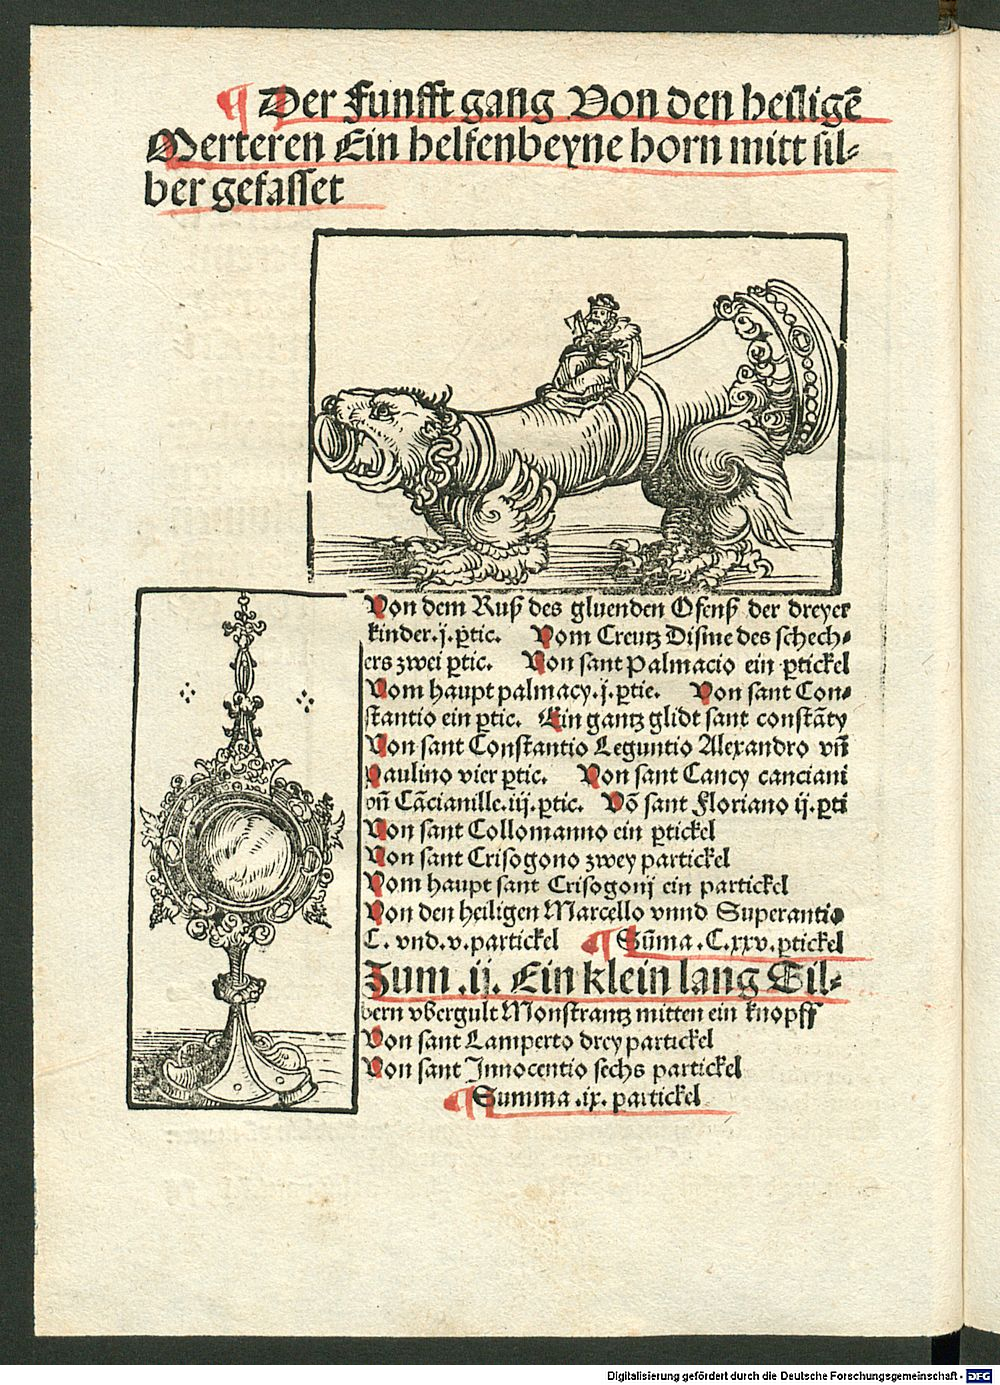 ¶ Der Funfft gang Von den heiligē
Merteren Ein helfenbeyne horn mitt sil-
ber gefasset
Von dem Ruß des gluenden Ofenß der dreyer
kinder .j. ptic. Vom Creutz Disme des schech-
ers zwei ptic. Von sant Palmacio ein ptickel
Vom haupt palmacy .j. ptie. Von sant Con-
stantio ein ptic. Ein gantz glidt sant constāty
Von sant Constantio Leguntio Alexandro vñ
Paulino vier ptic. Von sant Cancy canciani
vñ Cācianille .iij. ptic. Vō sant Floriano ij. pti
Von sant Collomanno ein ptickel
Von sant Crisogono zwey partickel
Vom haupt sant Crisogonij ein partickel
Von den heiligen Marcello vnnd Superantio
C. vnd .v. partickel ¶ Sūma .C.xxv. ptickel
Zum .ij. Ein klein lang Sil-
bern vbergult Monstrantz mitten ein knopff
Von sant Lamperto drey partickel
Von sant Innocentio sechs partickel
¶ Summa .ix. partickel
Digitalisierung gefördert durch die Deutsche Forschungsgemeinschaft - DFG